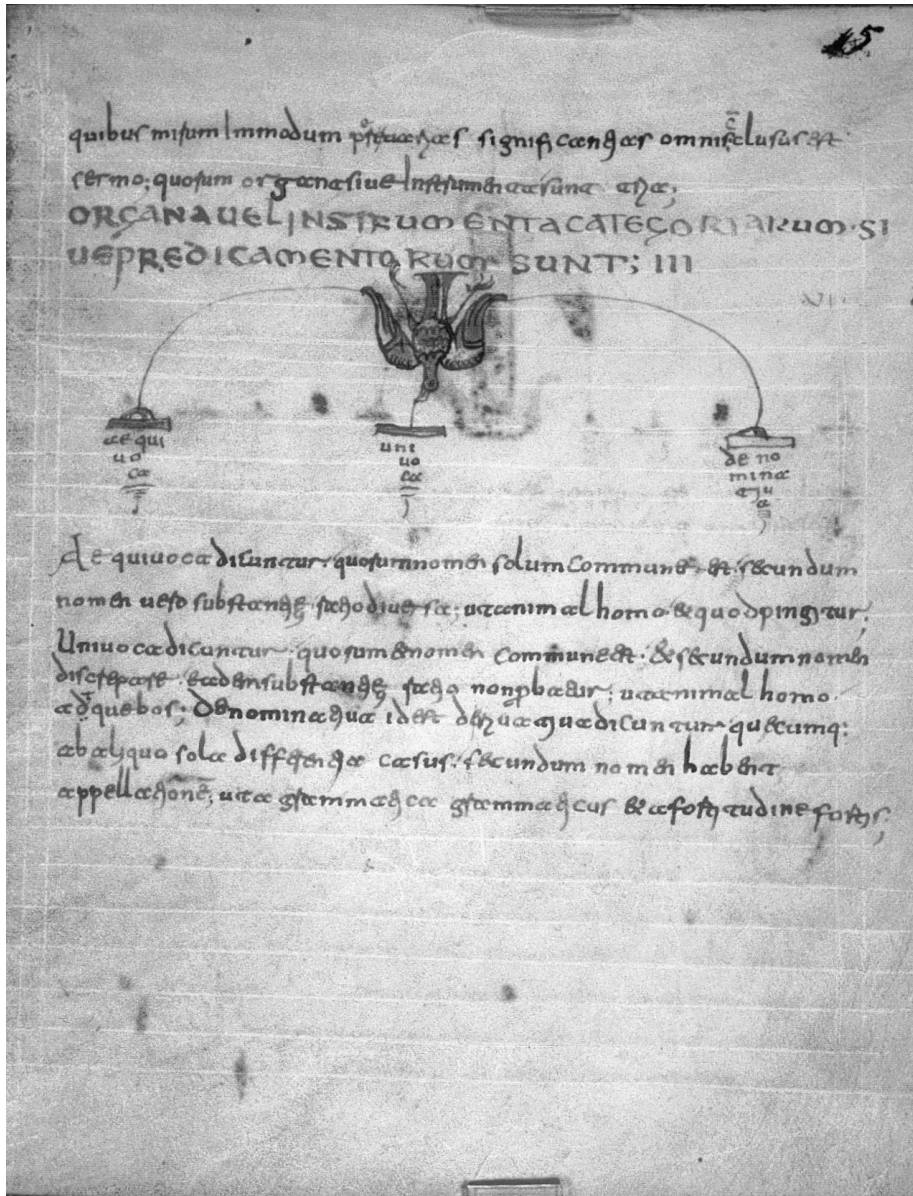 15
quibus misum Inmodum significantias omnis clusus est
sermo; quorum organa siue Instrumenta sunt tria;
ORGANA UEL INSTRUMENTA CATEGORIARUM · SI
UE PREDICAMENTORUM SUNT; III
ae qui
uo
ca
uni
uo
ca
de no
mina
tiu
a
Aequiuoca dicuntur · quorum nomen solum commune est · secundum
nomen uero substantiae ratio diuersa; ut animal homo & quod pingitur;
Uniuoca dicuntur · quorum & nomen commune est · & secundum nomen
discrepare eadem substantiae ratio non p̄batur; ut animal homo
atq̄ue bos; Denominatiua id est diriuatiua dicuntur quecumq:
ab aliquo sola differentia casus · secundum nomen habent
appellationē; ut a grammatica grammaticus & a fortitudine fortis;